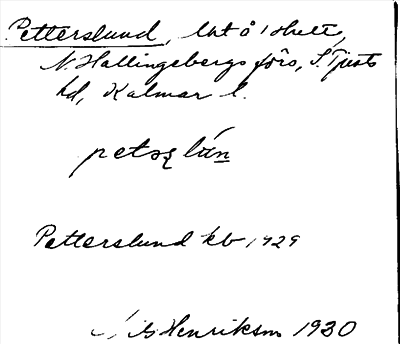 Petterslund, lht å 1 Helt,
N. Hallingebergs förs, S. Tjusts
hd, Kalmar l.
Petterslund kb 1929
Henrikson 1930